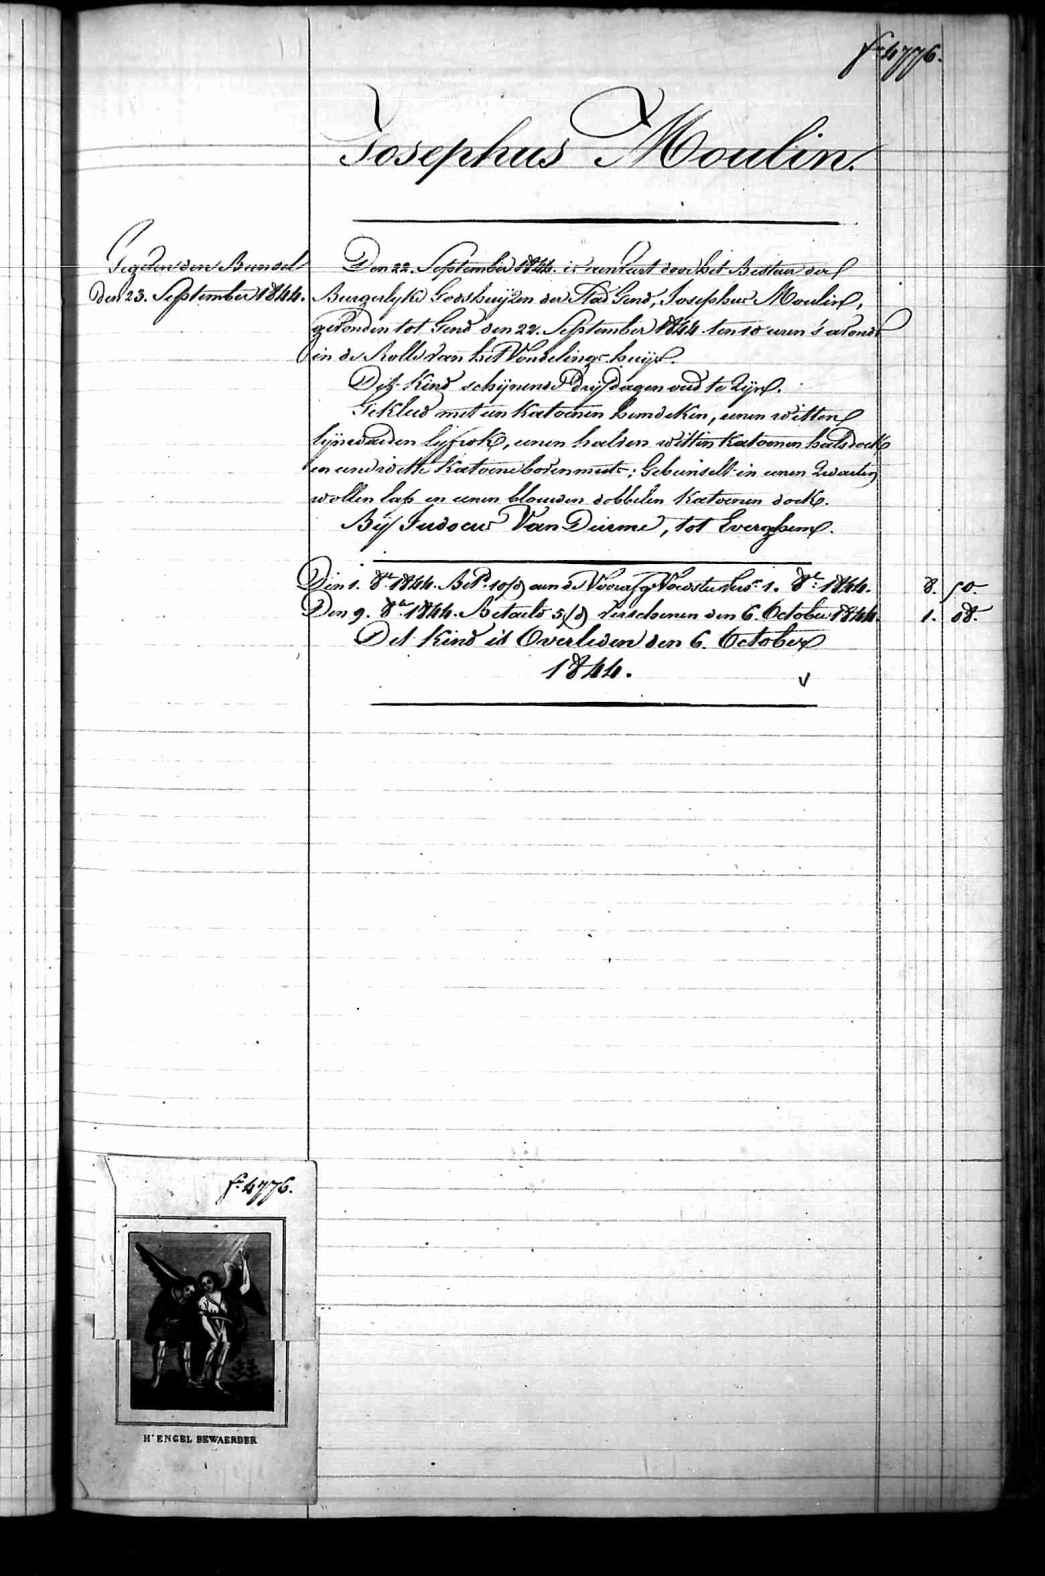 f° 4776.
Josephus Moulin.
Den 22. September 1844. is aenveert door het Bestier der
den 23. September 1844.
Burgerlyke Godshuijzen der Stad Gend, Josephus Moulin,
gevonden tot Gend den 22. September 1844. ten 10 uren 's avonds
in de Rolle van het Vondelings-huijs.
Dit Kind schijnende drij dagen oud te Zijn.
Gekleed met een Katoenen hemdeken, eenen witten
lijnwaeden lijfrok, eenen halven witten Katoenen halsdoek
en een witte Katoene bovenmuts; Gebunselt in eenen Zwarten
wollen lap en eenen blauwen dobbelen Katoenen doek.
Bij Judocus Van Durme, tot Everghem.
Den 1. 8re 1844. Bet. 10/d aen de Voedster 1. 8re 1844. 8. 50.
Den 9. 8re 1844. Betaelt 5/d Verschenen den 6. October 1844. 1. 08.
Dit Kind is Overleden den 6. October
1844.
f° 4776.
H^e ENGEL BEWAERDER